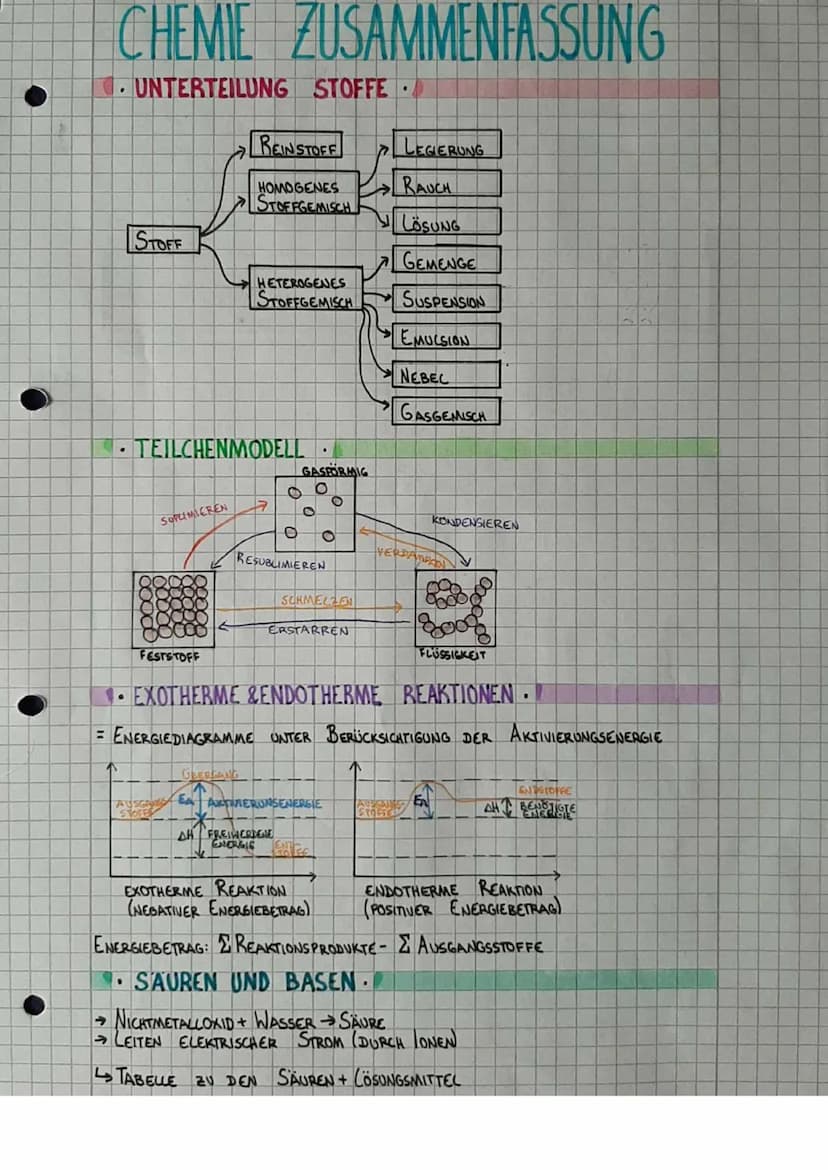 CHEMIE ZUSAMMENFASSUNG
· UNTERTEILUNG STOFFE ·
REINSTOFF
LEGIERUNG
HOMOGENES
STOFFGEMISCH
RAUCH
LÖSUNG
STOFF
GEMENGE
HETEROGENES
STOFFGEMISCH
SUSPENSION
EMULSION
NEBEL
GASGEMISCH
· TEILCHENMODELL ·
GASFÖRMIG
SUPLIMIEREN
KONDENSIEREN
RESUBLIMIEREN
VERDAMPFEN
SCHMELZEN
ERSTARREN
FESTSTOFF
FLÜSSIGKEIT
· EXOTHERME & ENDOTHERME REAKTIONEN ·
= ENERGIEDIAGRAMME UNTER BERÜCKSICHTIGUNG DER AKTIVIERUNGSENERGIE
ÜBERGANG
AUSGANGS-
STOFFE
EA AKTIVIERUNSENERGIE
ΔH FREIWERDENE
ENERGIE
END-
STOFFE
AUSGANGS-
STOFFE
EA
ENDSTOFFE
ΔH BENÖTIGTE
ENERGIE
EXOTHERME REAKTION
(NEGATIVER ENERGIEBETRAG)
ENDOTHERME REAKTION
(POSITIVER ENERGIEBETRAG)
ENERGIEBETRAG: Σ REAKTIONSPRODUKTE - Σ AUSGANGSSTOFFE
· SÄUREN UND BASEN ·
→ NICHTMETALLOXID + WASSER → SÄURE
→ LEITEN ELEKTRISCHER STROM (DURCH IONEN)
↳ TABELLE ZU DEN SÄUREN + LÖSUNGSMITTEL